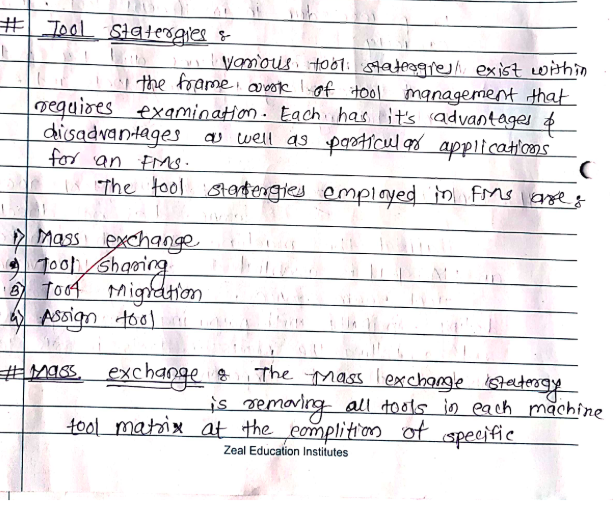 # Tool statergies :
various tool statergies exist within
the frame work of tool management that
requires examination. Each has it's advantages &
disadvantages as well as particular applications
for an FMS.
The tool statergies employed in FMS are :
1) Mass exchange
2) Tool sharing
3) Tool Migration
4) Assign tool
# Mass exchange : The Mass exchange statergy
is removing all tools in each machine
tool matrix at the complition of specific
Zeal Education Institutes